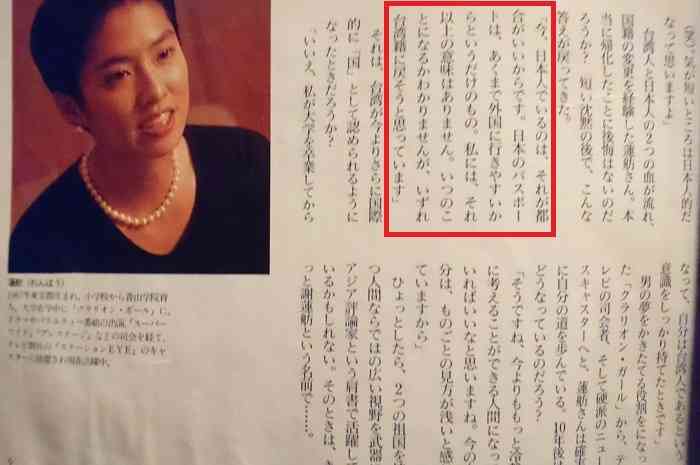 (笑)気が短いところは日本人的だ
なって思いますよ」
台湾人と日本人の2つの血が流れ、
国籍の変更を経験した蓮舫さん。本
当に帰化したことに後悔はないのだ
ろうか? 短い沈黙の後で、こんな
答えが戻ってきた。
「今、日本人でいるのは、それが都
合がいいからです。日本のパスポー
トは、あくまで外国に行きやすいか
らというだけのもの。私には、それ
以上の意味はありません。いつのこ
とになるかわかりませんが、いずれ
台湾籍に戻そうと思っています」
それは、台湾が今よりさらに国際
的に「国」として認められるように
なったときだろうか?
「いいえ、私が大学を卒業してから
蓮舫(れんほう)
1967年東京都生まれ。小学校から青山学院育
ち。大学在学中に「クラリオン・ガール」に。
テレビ朝日の「ステーションEYE」のキャ
なって、自分は台湾人であるという
意識をしっかり持てたときです」
男の夢をかきたてる役割をになっ
た「クラリオン・ガール」から、テ
レビの司会者、そして硬派のニュー
スキャスターへと、蓮舫さんは確実
に自分の道を歩んでいる。10年後は
どうなっているのだろう?
「そうですね、今よりももっと冷
に考えることができる人間になって
いればいいなと思いますね。今の
分は、ものごとの見方が浅いと感
ていますから」
ひょっとしたら、2つの祖国を
つ人間ならではの広い視野を武器
アジア評論家という肩書で活躍して
いるかもしれない。そのときは、き
っと謝蓮舫という名前で……。